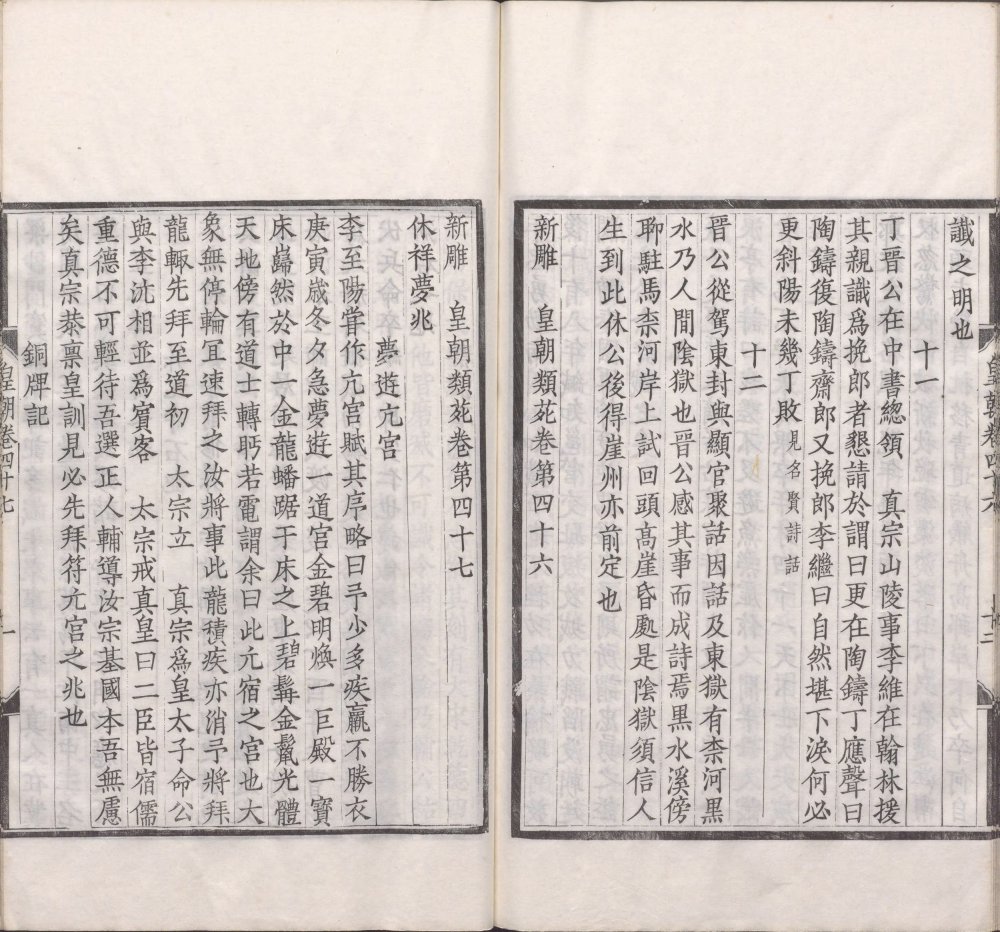 讖之明也
十一
丁晉公在中書總領　真宗山陵事李維在翰林援
其親識爲挽郎者懇請於謂曰更在陶鑄丁應聲曰
陶鑄復陶鑄齋郎又挽郎李繼曰自然堪下淚何必
更斜陽未幾丁敗見名賢詩話
十二
晉公從駕東封與顯官聚話因話及東獄有柰河黑
水乃人間陰獄也晉公感其事而成詩焉黑水溪傍
聊駐馬柰河岸上試回頭高崖昏處是陰獄須信人
生到此休公後得崖州亦前定也
新雕　皇朝類苑卷第四十六
皇朝卷四十六　十二
新雕　皇朝類苑卷第四十七
休祥夢兆
夢遊亢宫
李至陽嘗作亢宫賦其序略曰予少多疾羸不勝衣
庚寅歲冬夕急夢遊一道宫金碧明煥一巨殿一寶
床巋然於中一金龍蟠踞于床之上碧髯金鬣光體
天地傍有道士轉眄若電謂余曰此亢宿之宫也大
象無停輪冝速拜之汝將事此龍積疾亦消予將拜
龍輙先拜至道初　太宗立　真宗爲皇太子命公
與李沆相並爲賓客　太宗戒真皇曰二臣皆宿儒
重德不可輕待吾選正人輔導汝宗基國本吾無慮
矣真宗恭稟皇訓見必先拜符亢宫之兆也
銅牌記
皇朝卷四十七　一